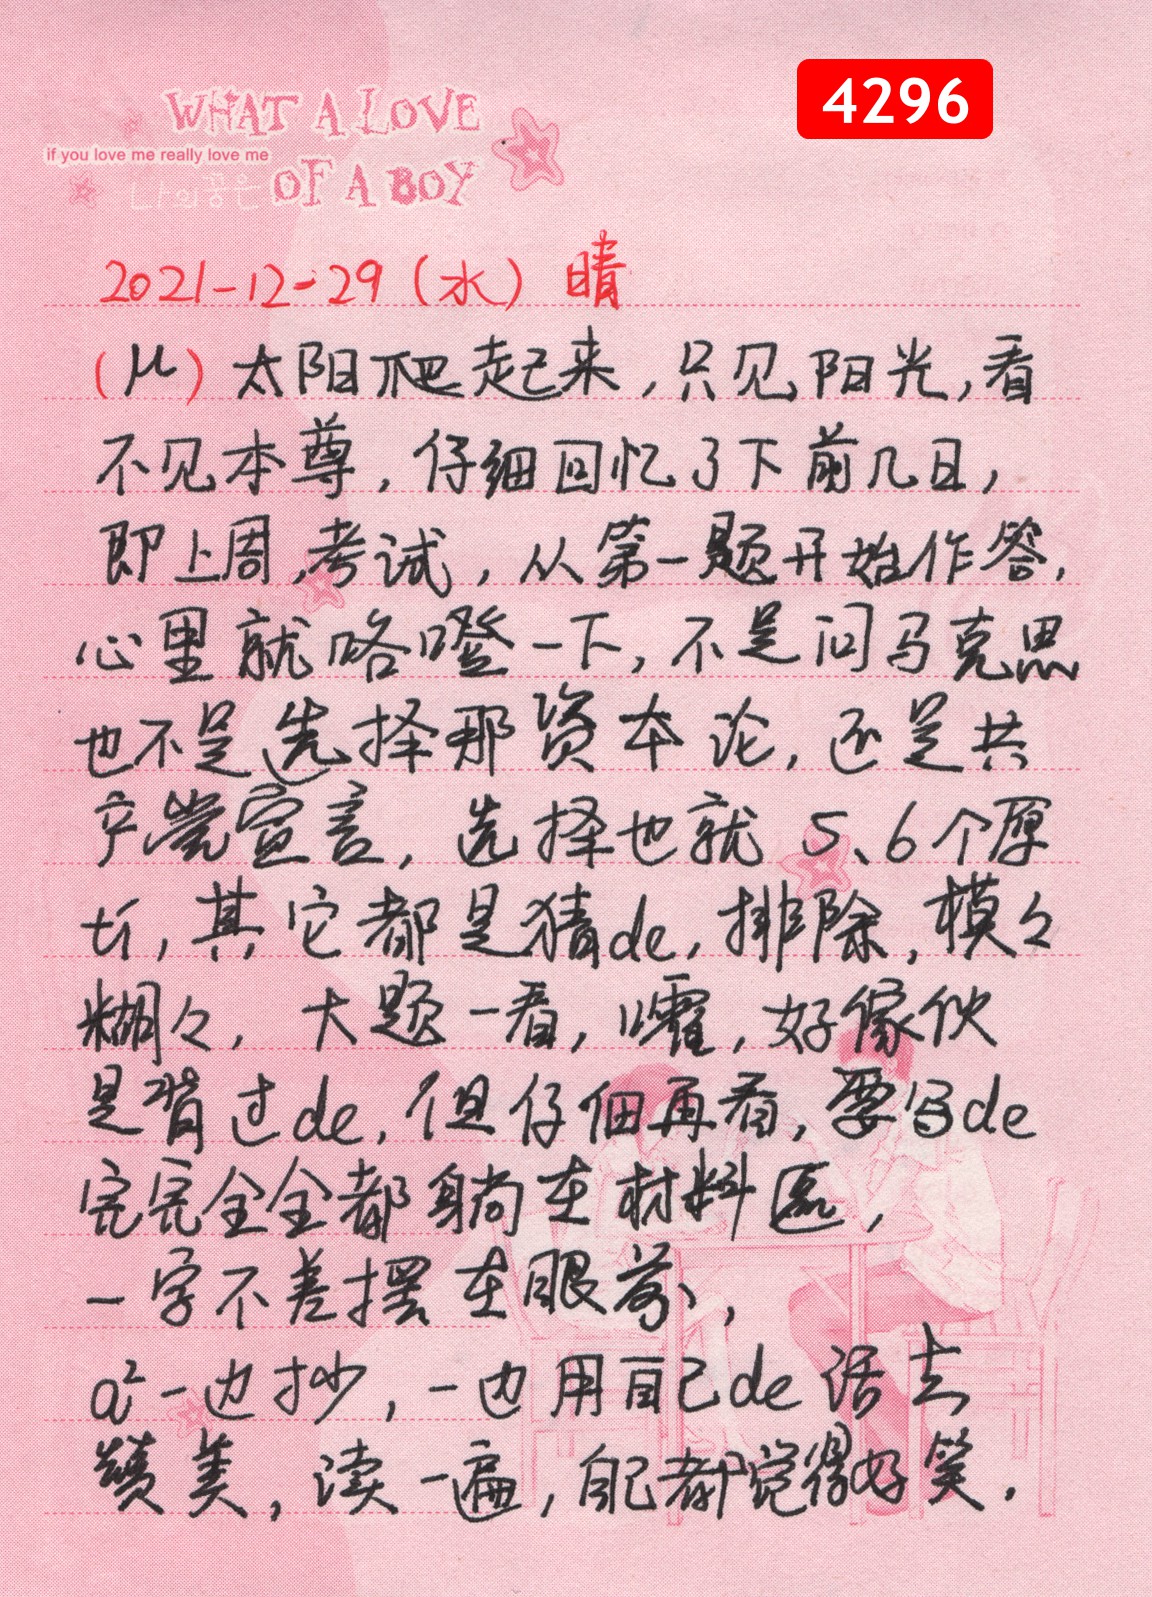 4296
WHAT A LOVE
if you love me really love me
나의꿈은 OF A BOY
2021-12-29(水) 晴
(μ) 太阳爬起来,只见阳光,看
不见本尊,仔细回忆了下前几日,
即上周,考试,从第一题开始作答,
心里就咯噔一下,不是问马克思
也不是选择那资本论,还是共
产党宣言,选择也就 5、6个原
坊,其它都是猜de,排除,模々
糊々,大题一看,嚯,好傢伙
是背过de,但仔佃再看,要写de
完完全全都躺在材料區,
一字不差摆在眼前,
一边抄,一边用自己de话去
赞美,读一遍,自己都觉得好笑.